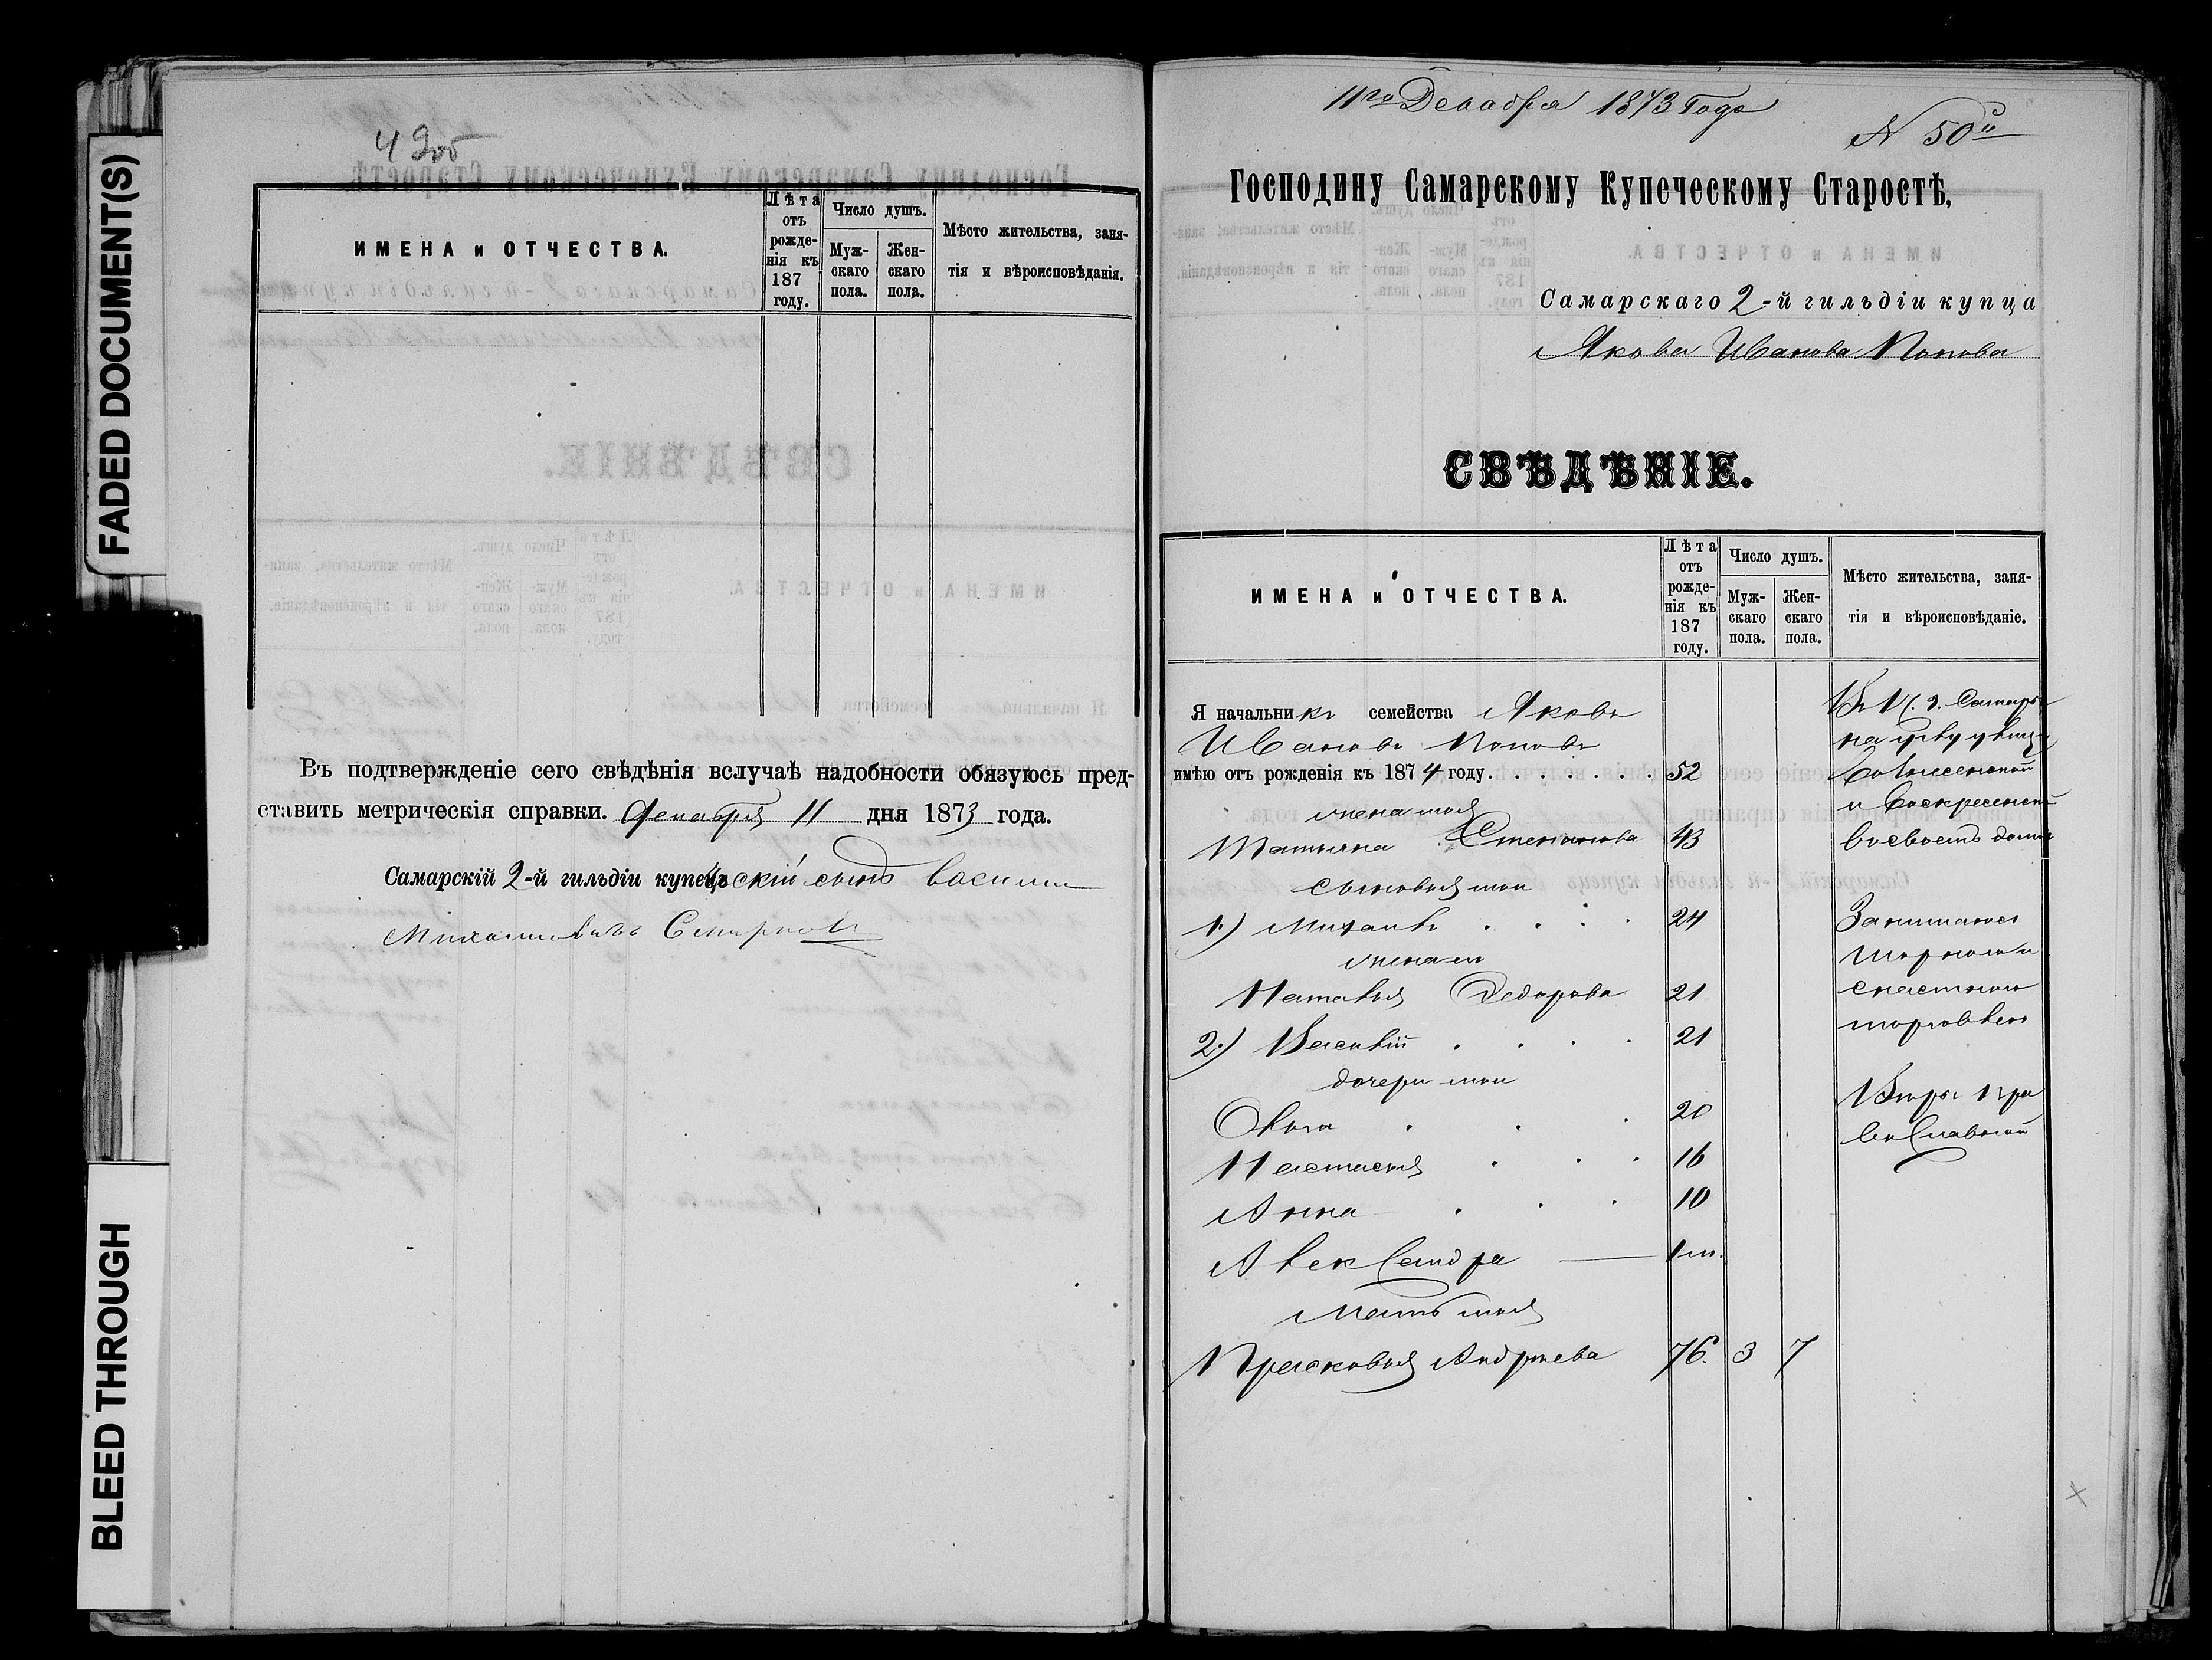 FADED DOCUMENT(S)
BLEED THROUGH
49об
ИМЕНА и ОТЧЕСТВА.
Лѣта отъ рожде-нія къ 187 году.
Число душъ.
Муж-скаго пола.
Жен-скаго пола.
Мѣсто жительства, заня-
тія и вѣроисповѣданія.
Въ подтвержденіе сего свѣдѣнія вслучаѣ надобности обязуюсь пред-
ставить метрическія справки. Декабря 11 дня 1873 года.
Самарскій 2-й гильдіи купеческій сынъ Василий
Михаиловичъ Смирновъ
11го Декабря 1873 Года
N 50й
Господину Самарскому Купеческому Старостѣ,
Самарскаго 2-й гильдіи купца
Якова Иванова Попова
СВѢДѢНІЕ.
ИМЕНА и ОТЧЕСТВА.
Лѣта отъ рожде-нія къ 187 году.
Число душъ.
Муж-скаго пола.
Жен-скаго пола.
Мѣсто жительства, заня-
тія и вѣроисповѣданіе.
Я начальникъ семейства Яковъ
Ивановъ Поповъ
имѣю отъ рожденія къ 1874 году. 52
жена моя
Татьяна Степанова 43
сыновья мои
1.) Михаилъ 24
жена его
Наталья Федорова 21
2.) Василій 21
дочери мои
Ольга 20
Настасья 16
Анна 10
Александра 1 м.
Мать моя
Прасковья Андреева 76. 3 7
и Воскресенской
въ своемъ доме
Занимаюсь
торговлею
Вѣры пра
вославной